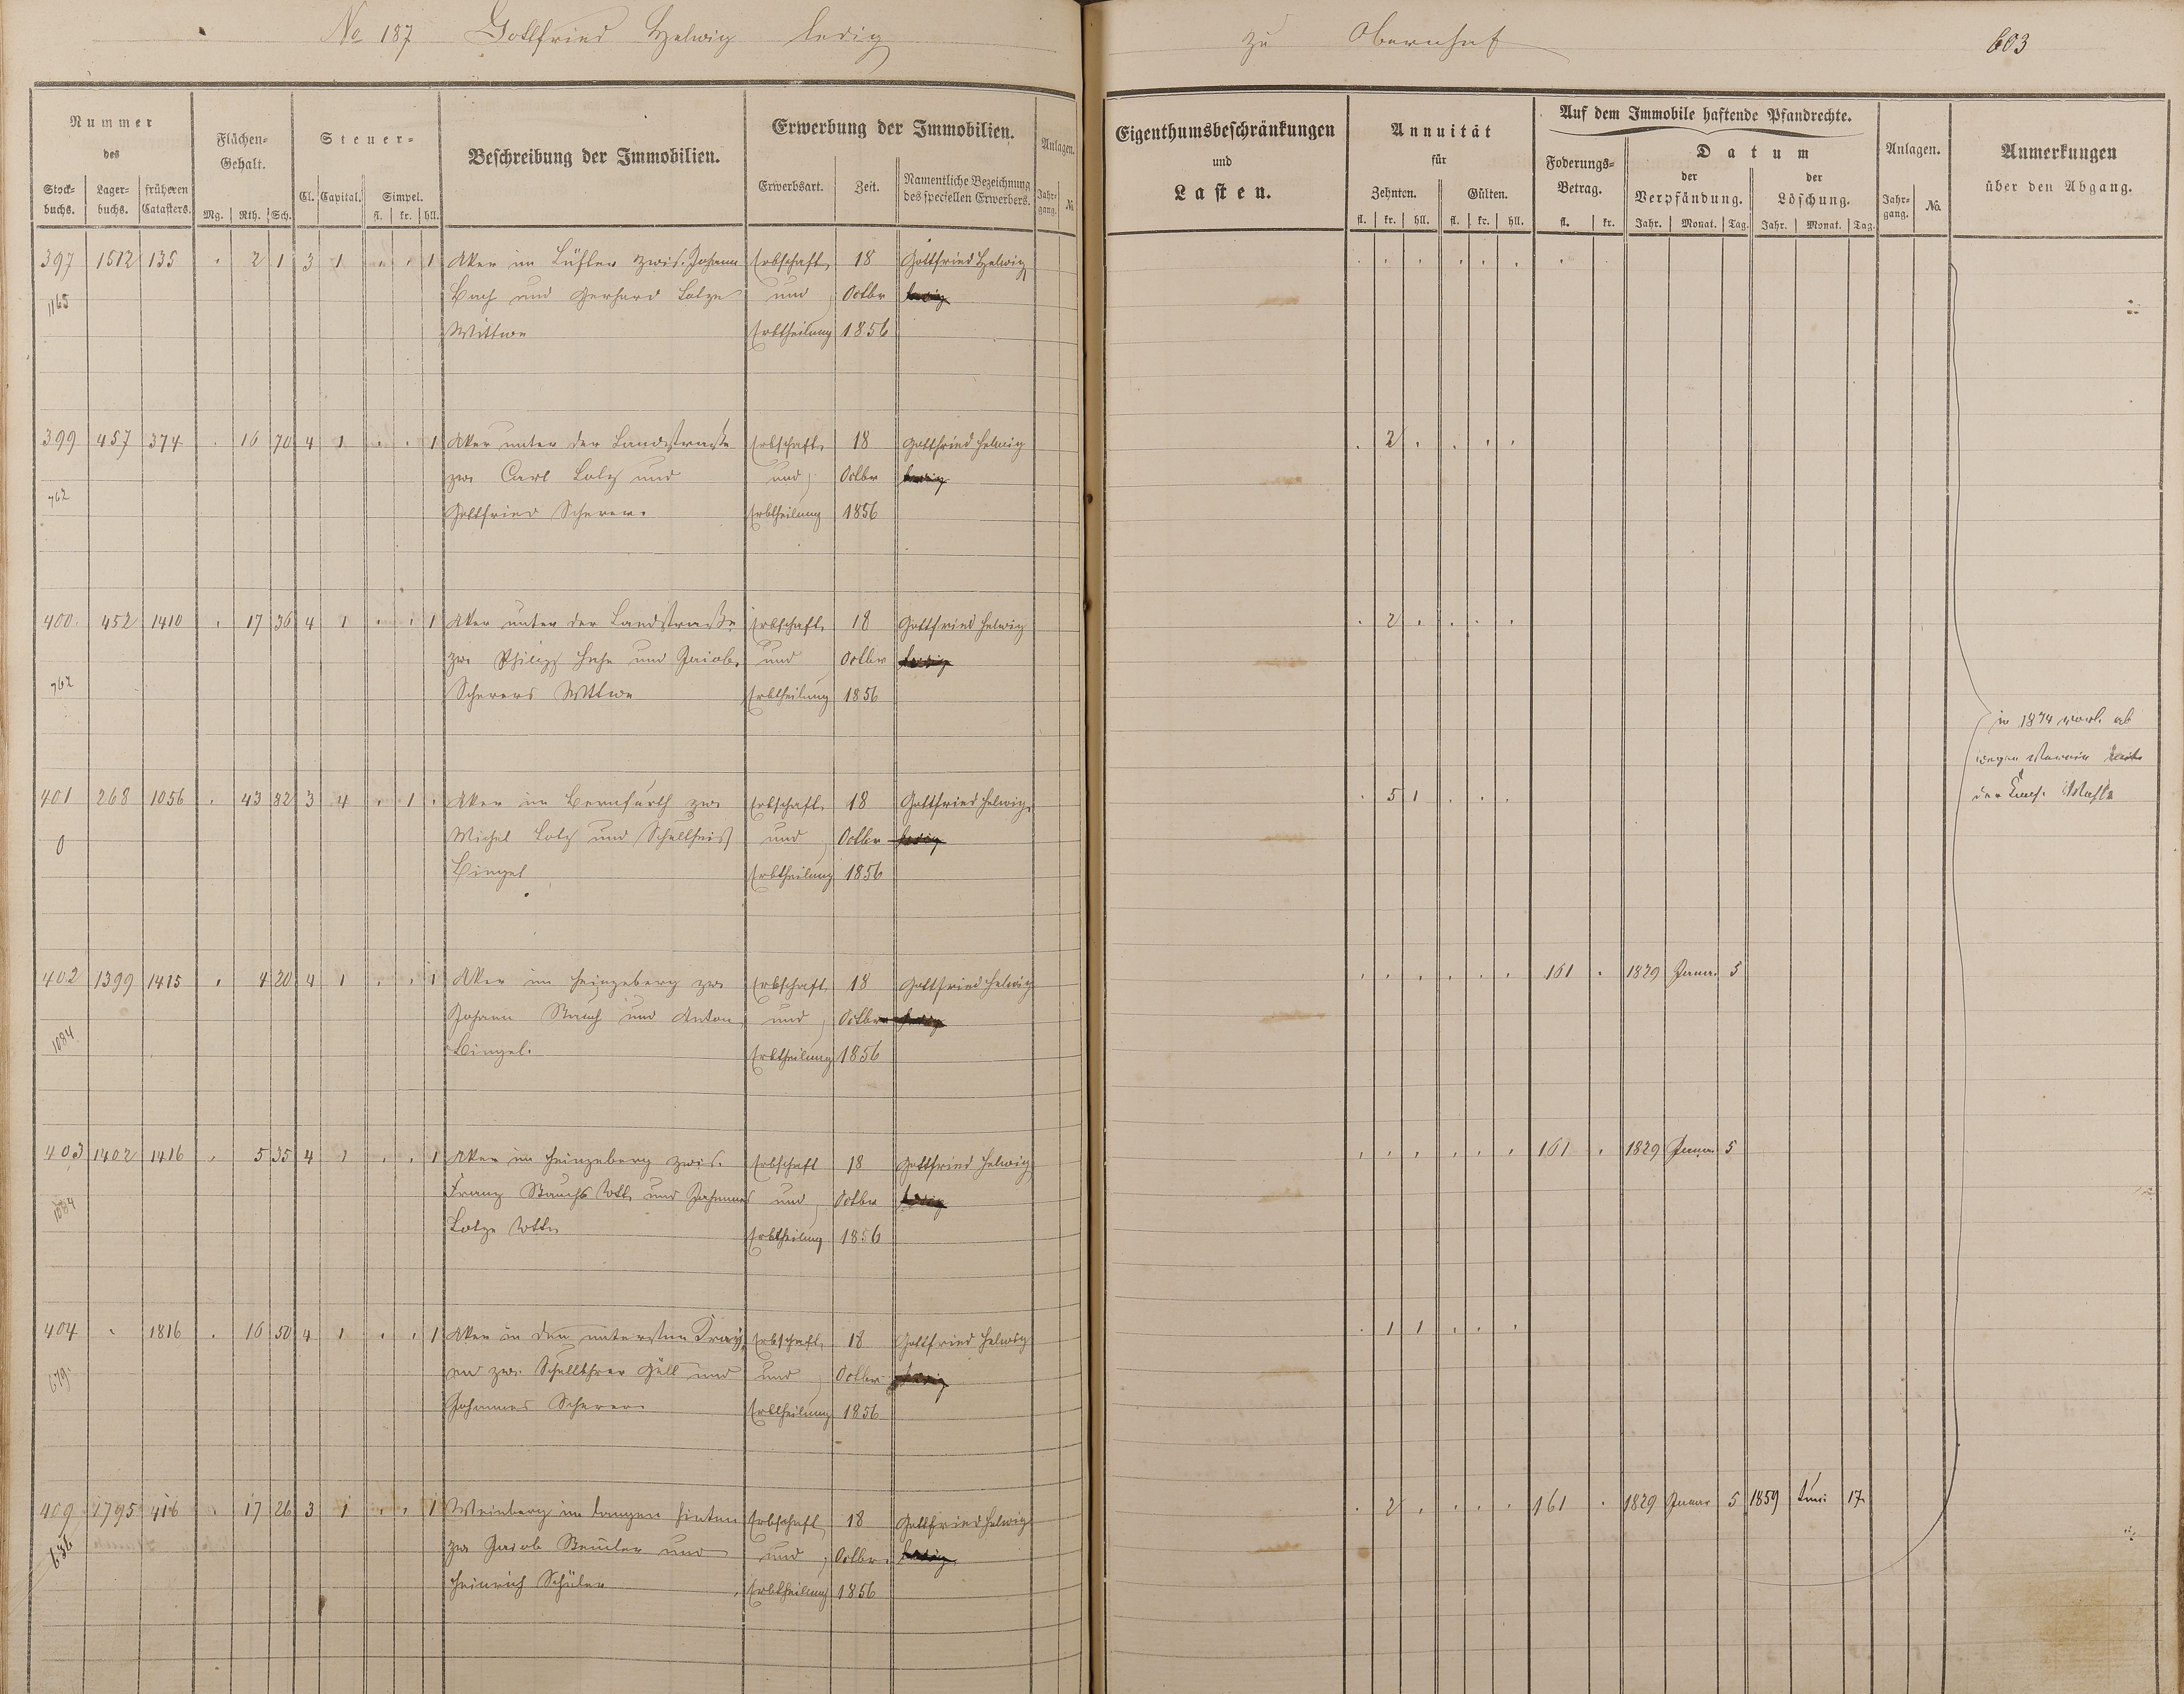 No 187 Gottfried Helwig ledig
zu Obernhof 603
Nummer des
Stockbuchs. Lagerbuchs. früheren Catasters.
Flächen-Gehalt.
Mg. Rth. Sch.
Steuer-
Cl. Capital. Simpel.
fl. kr. hll.
Beschreibung der Immobilien.
Erwerbung der Immobilien.
Erwerbsart. Zeit. Namentliche Bezeichnung des speciellen Erwerbers.
Anlagen.
Jahrgang. No
Eigenthumsbeschränkungen
und
Lasten.
Annuität
für
Zehnten. Gülten.
fl. kr. hll. fl. kr. hll.
Auf dem Immobile haftende Pfandrechte.
Foderungs-Betrag.
fl. kr.
Datum
der Verpfändung. der Löschung.
Jahr. Monat. Tag. Jahr. Monat. Tag.
Anlagen.
Jahrgang. No.
Anmerkungen
über den Abgang.
397 1512 135 . 2 1 3 1 . . 1 Aker im zwis. Johann Erbschaft 18 Gottfried Helwig
1165 Bach und Gerhard Lotze und Octbr ledig
Wittwe Erbtheilung 1856
399 457 374 . 16 70 4 1 . . 1 Aker unter der Landstraße Erbschaft 18 Gottfried Helwig . 2 .
762 zw. Carl Lotz und und Octbr ledig
Gottfried Scherer. Erbtheilung 1856
400. 452 1410 . 17 36 4 1 . . 1 Aker unter der Landstraße Erbschaft 18 Gottfried Helwig . 2 .
762 zw. Philipp und Jacob und Octbr ledig
Scherers Wittwe Erbtheilung 1856
in 1874 ab
wegen
der
401 268 1056 . 43 82 3 4 . 1 . Aker im zw. Erbschaft 18 Gottfried Helwig . 5 1
0 Michel Lotz und Schultheis und Octbr ledig
Bingel Erbtheilung 1856
402 1399 1415 . 4 20 4 1 . . 1 Aker im Heinzeberg zw. Erbschaft 18 Gottfried Helwig 161 . 1829 Januar 5
1084 Johann Bauch und Anton und Octbr ledig
Bingel. Erbtheilung 1856
403 1402 1416 . 5 35 4 1 . . 1 Aker im Heinzeberg zwis. Erbschaft 18 Gottfried Helwig 161 . 1829 Januar 5
1084 Franz Bauchs Wtt. und Johannes und Octbr ledig
Lotze Wttw Erbtheilung 1856
404 . 1816 . 16 50 4 1 . . 1 Aker in den untersten Erbschaft 18 Gottfried Helwig . 1 1
679 zw. Schullehrer Göll und und Octbr ledig
Johannes Scherer Erbtheilung 1856
409 1795 416 . 17 26 3 1 . . 1 Weinberg im langen hinten Erbschaft 18 Gottfried Helwig . 2 . 161 . 1829 Januar 5 1859 Juni 17
636 zw. Jacob und und Octbr. ledig
Heinrich Schüler Erbtheilung 1856